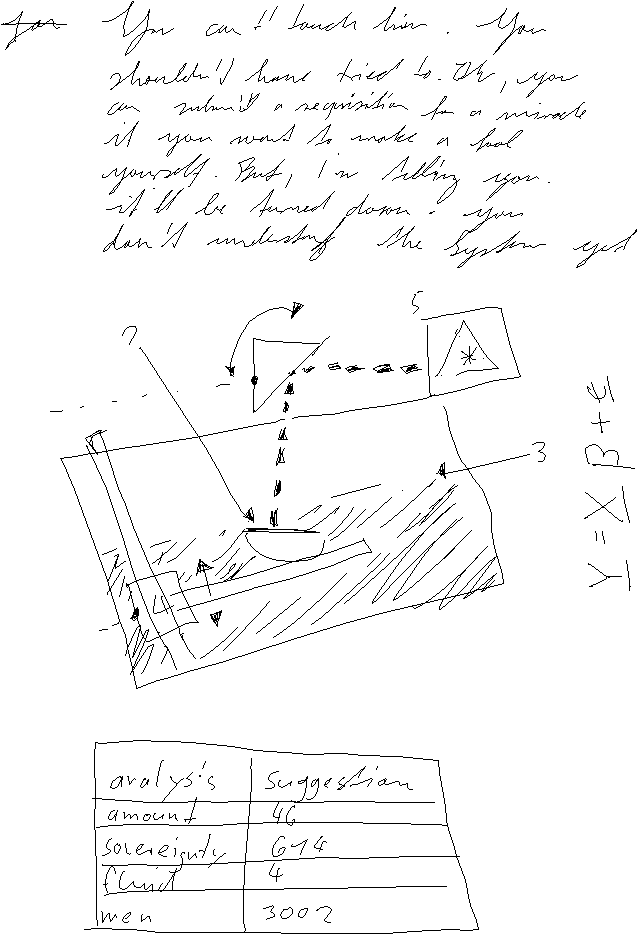 for You can't touch him. You
shouldn't have tried to. Ok, you
can submit a requisition for a miracle
if you want to make a fool
yourself. But, I'm telling you.
it'll be turned down. you
don't understand the system yet
?
5
3
4
Y = X β + ε
analysis suggestion
amount 46
sovereignty 614
fluid 4
men 3002